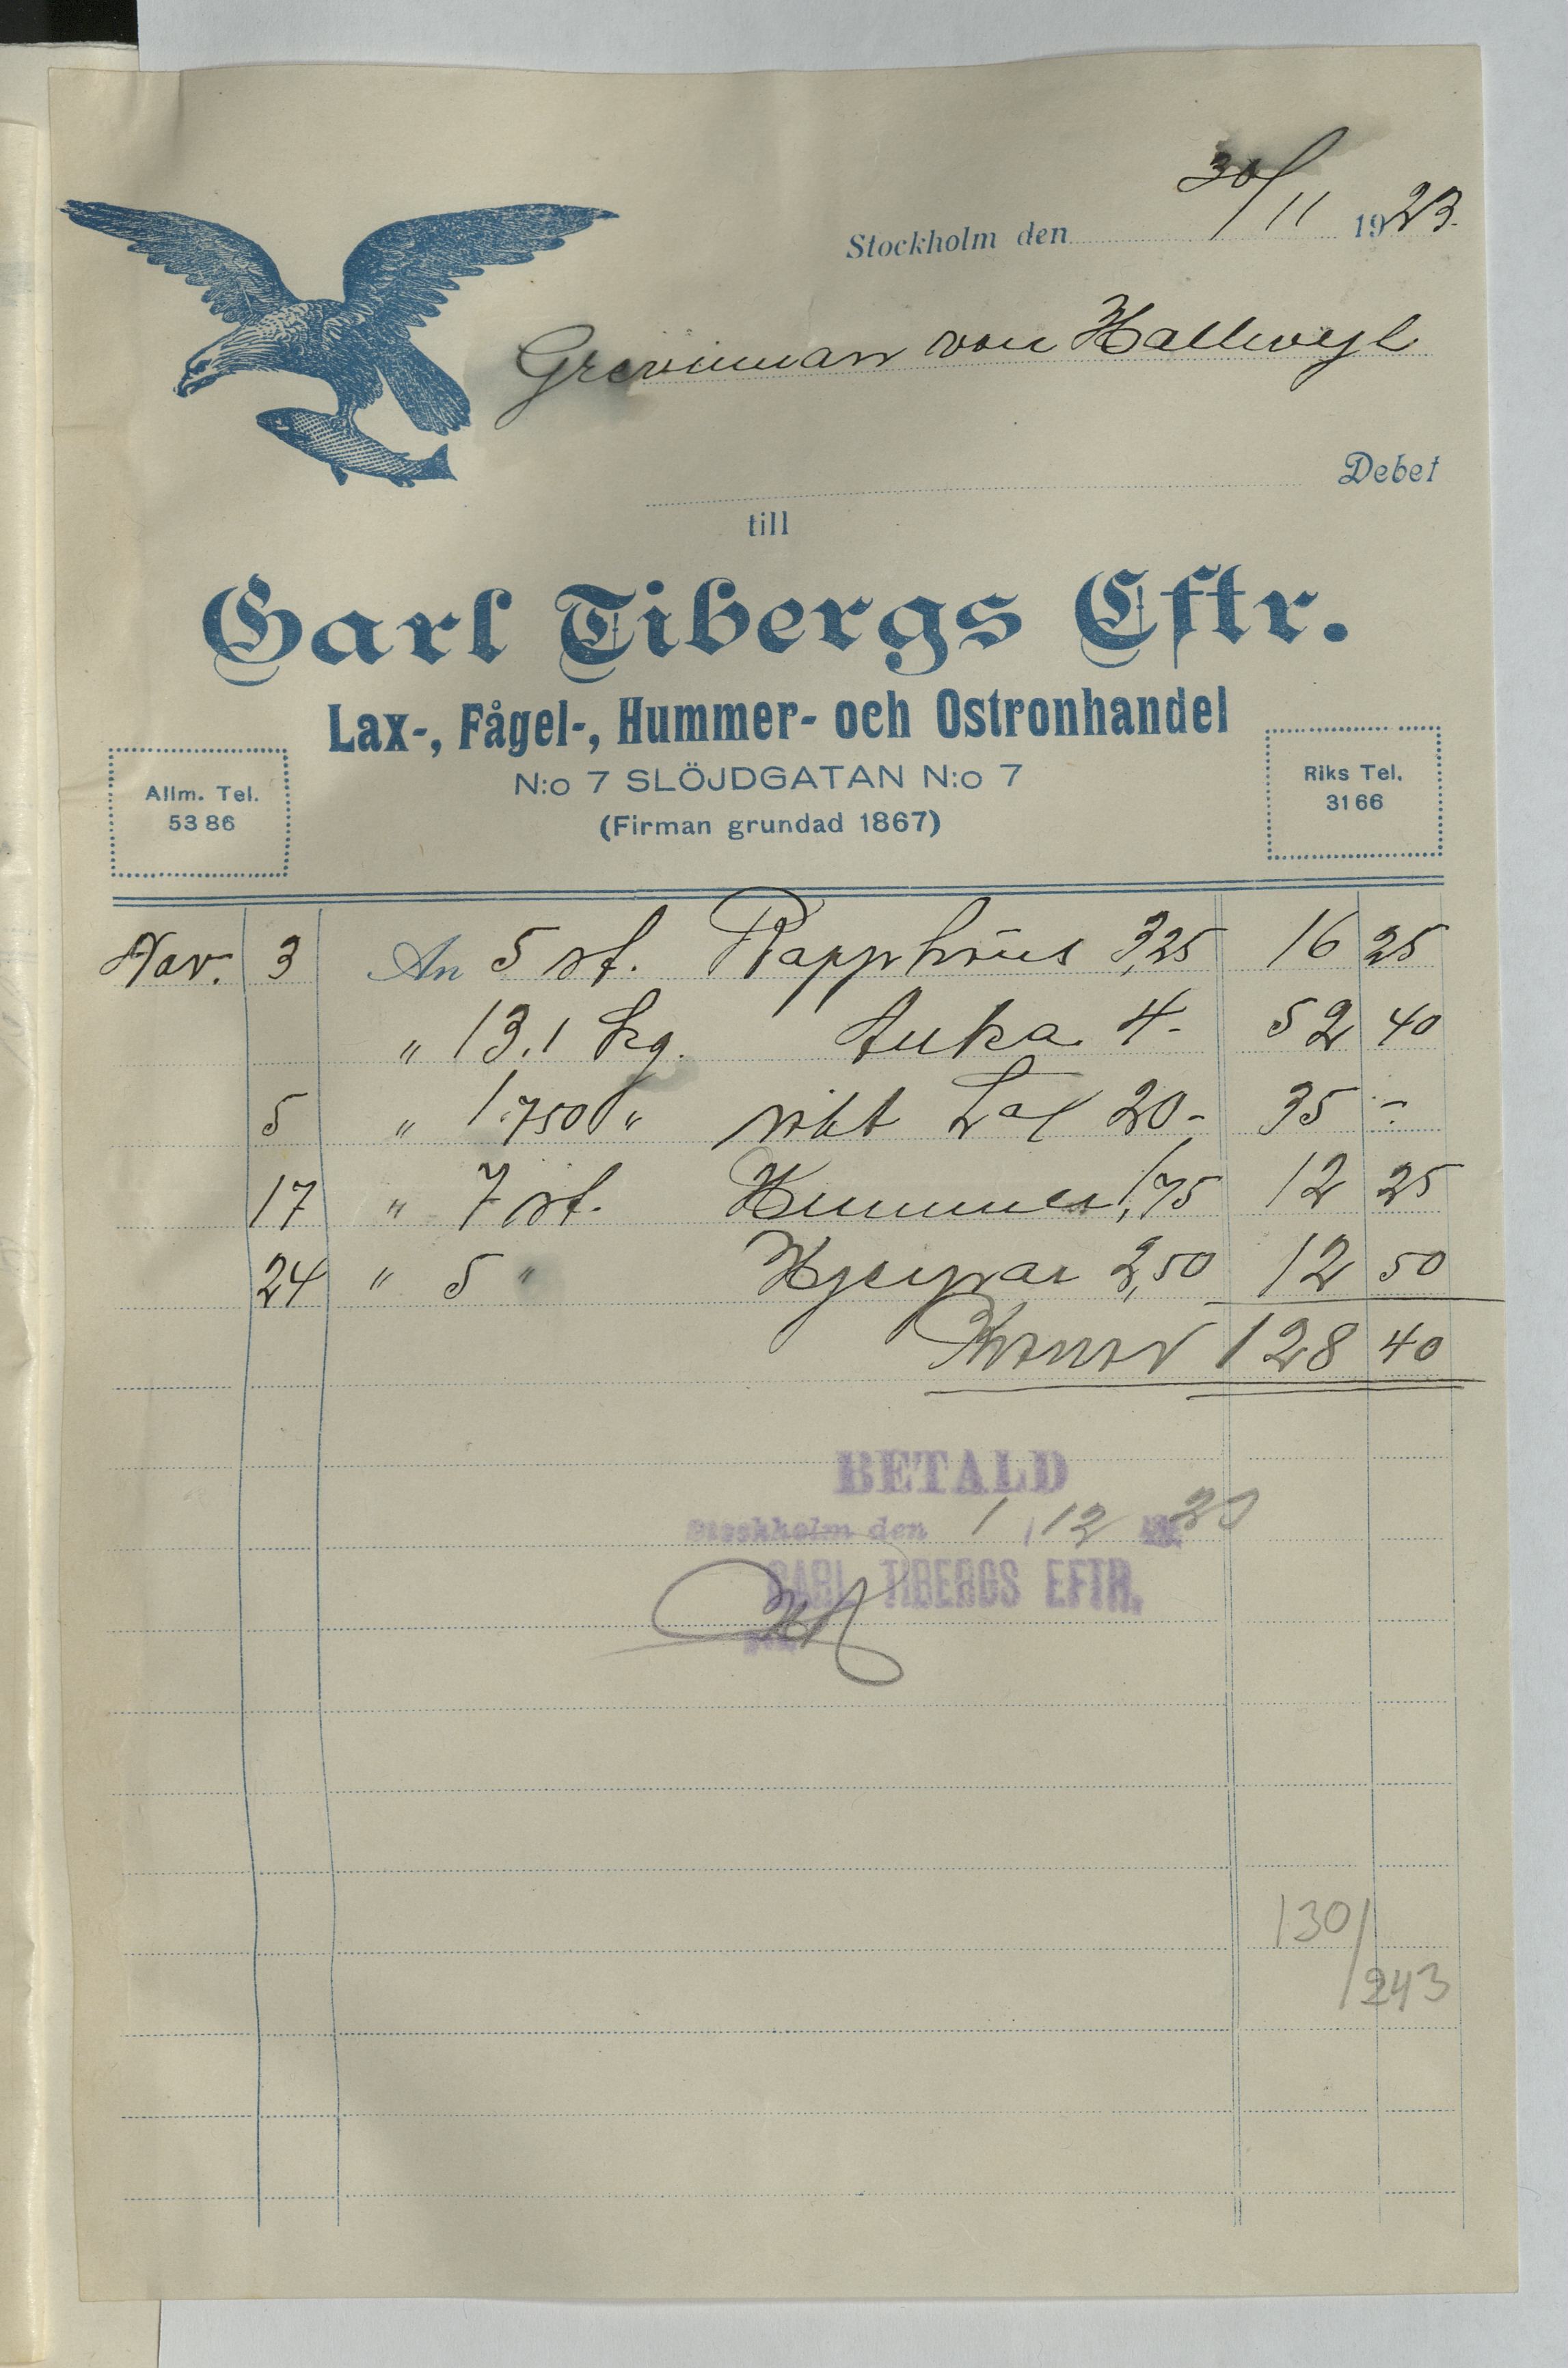 Stockholm den 30/11 1923.
Grevinnan von Hallwyl
Debet
till
Carl Tibergs Eftr.
Lax-, Fågel-, Hummer- och Ostronhandel
N:o 7 SLÖJDGATAN N:o 7
(Firman grundad 1867)
Allm. Tel.
53 86
Riks Tel.
31 66
Nov. 3 An 5 st. Rapphöns 3,25 16 25
" 13.1 kg. Anka 4- 52 40
5 " 1.750 " rökt Lax 20- 35 -
17 " 7 st. Hummer 1,75 12 25
24 " 5 " Hjerpar 2,50 12 50
Kronor 128 40
BETALD
Stockholm den 1/12 23
CARL TIBERGS EFTR.
130/
243